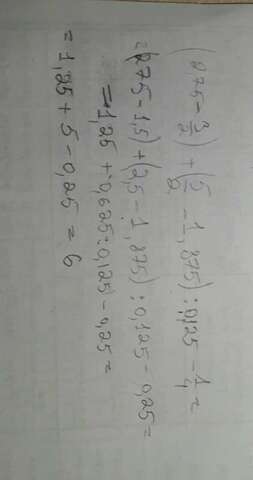 (275 - 3/2) + (5/2 - 1,875) : 0,125 - 1/4 =
= (275 - 1,5) + (2,5 - 1,875) : 0,125 - 0,25 =
= 1,25 + 0,625 : 0,125 - 0,25 =
= 1,25 + 5 - 0,25 = 6